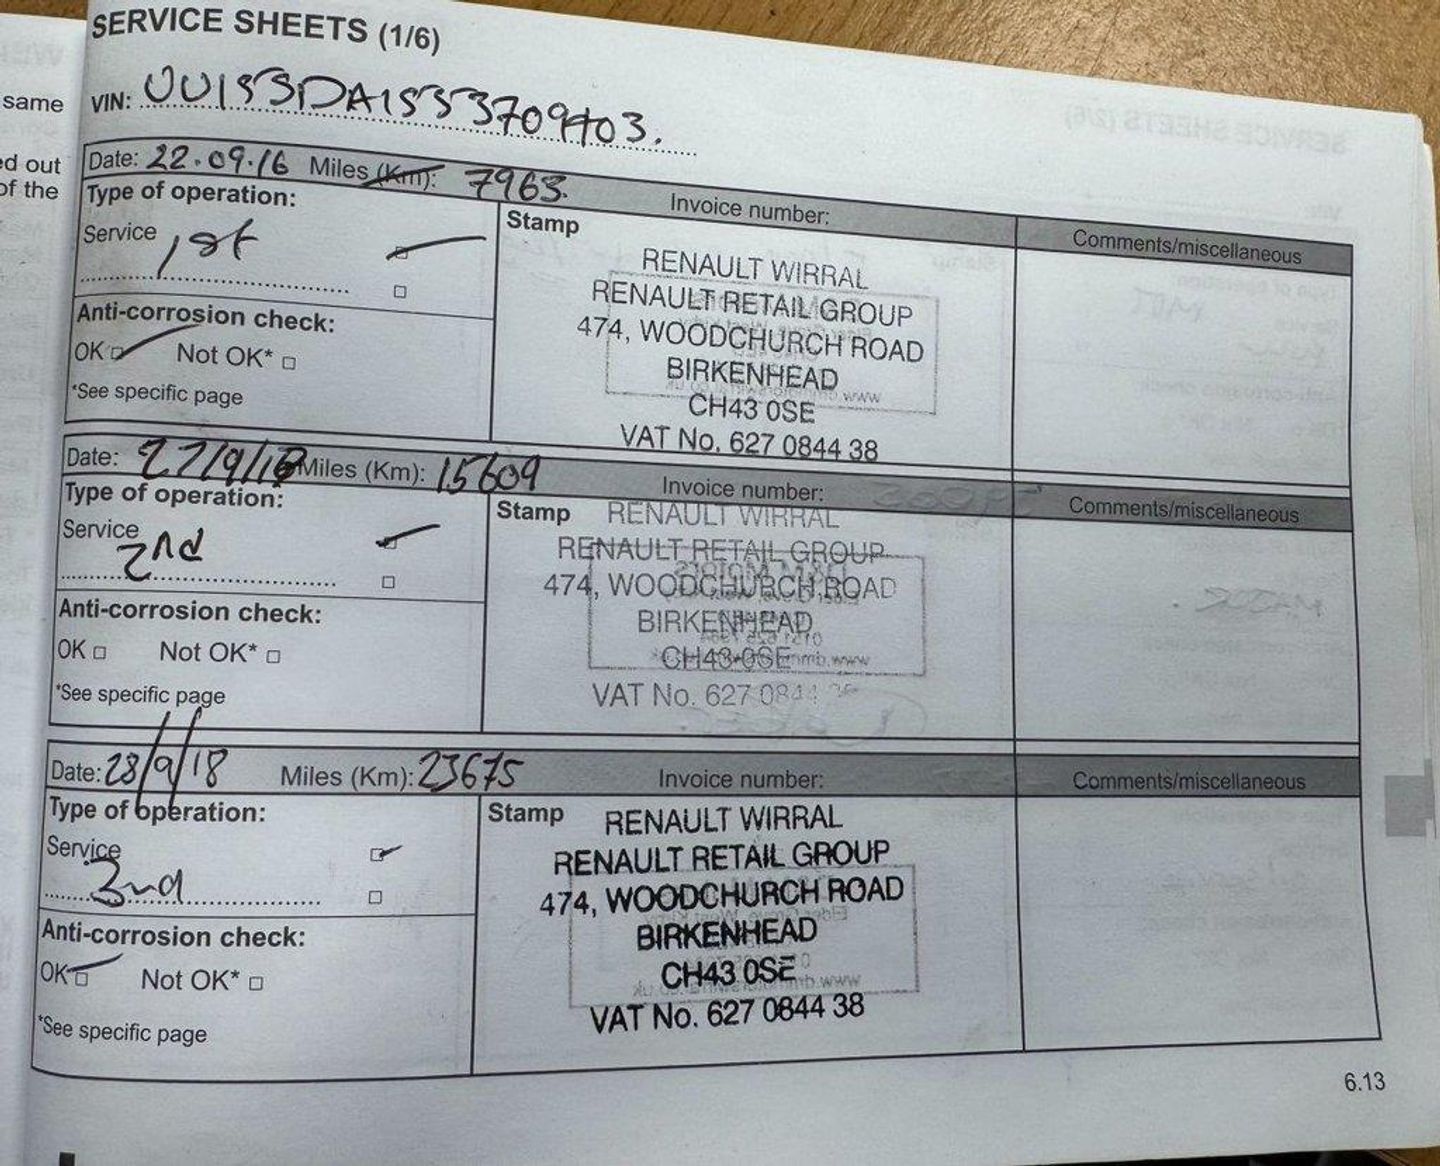 SERVICE SHEETS (1/6)
VIN:
same
ed out
of the
Date: 22.09.16 Miles (Km): 7963. Invoice number:
Type of operation:
Service 1st
Stamp
Comments/miscellaneous
RENAULT WIRRAL
RENAULT RETAIL GROUP
474, WOODCHURCH ROAD
BIRKENHEAD
CH43 0SE
VAT No. 627 0844 38
Anti-corrosion check:
OK Not OK*
*See specific page
Date: 27/9/1 Miles (Km): 15609 Invoice number:
Type of operation:
Service 2nd
Stamp
Comments/miscellaneous
RENAULT WIRRAL
RENAULT RETAIL GROUP
474, WOODCHURCH ROAD
BIRKENHEAD
CH43 0SE
VAT No. 627 0844
Anti-corrosion check:
OK Not OK*
*See specific page
Date: 28/9/18 Miles (Km): 23675 Invoice number:
Type of operation:
Service 3rd
Stamp
Comments/miscellaneous
RENAULT WIRRAL
RENAULT RETAIL GROUP
474, WOODCHURCH ROAD
BIRKENHEAD
CH43 0SE
VAT No. 627 0844 38
Anti-corrosion check:
OK Not OK*
*See specific page
6.13